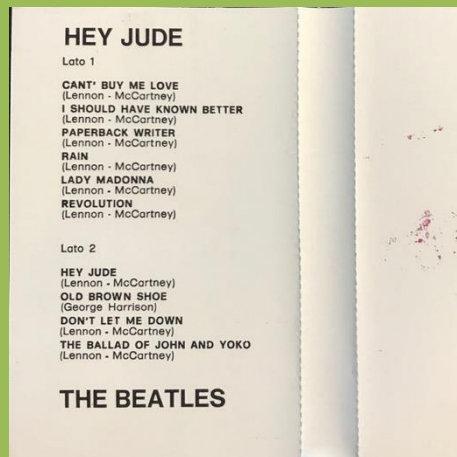 HEY JUDE
Lato 1
CANT' BUY ME LOVE
(Lennon - McCartney)
I SHOULD HAVE KNOWN BETTER
(Lennon - McCartney)
PAPERBACK WRITER
(Lennon - McCartney)
RAIN
(Lennon - McCartney)
LADY MADONNA
(Lennon - McCartney)
REVOLUTION
(Lennon - McCartney)
Lato 2
HEY JUDE
(Lennon - McCartney)
OLD BROWN SHOE
(George Harrison)
DON'T LET ME DOWN
(Lennon - McCartney)
THE BALLAD OF JOHN AND YOKO
(Lennon - McCartney)
THE BEATLES